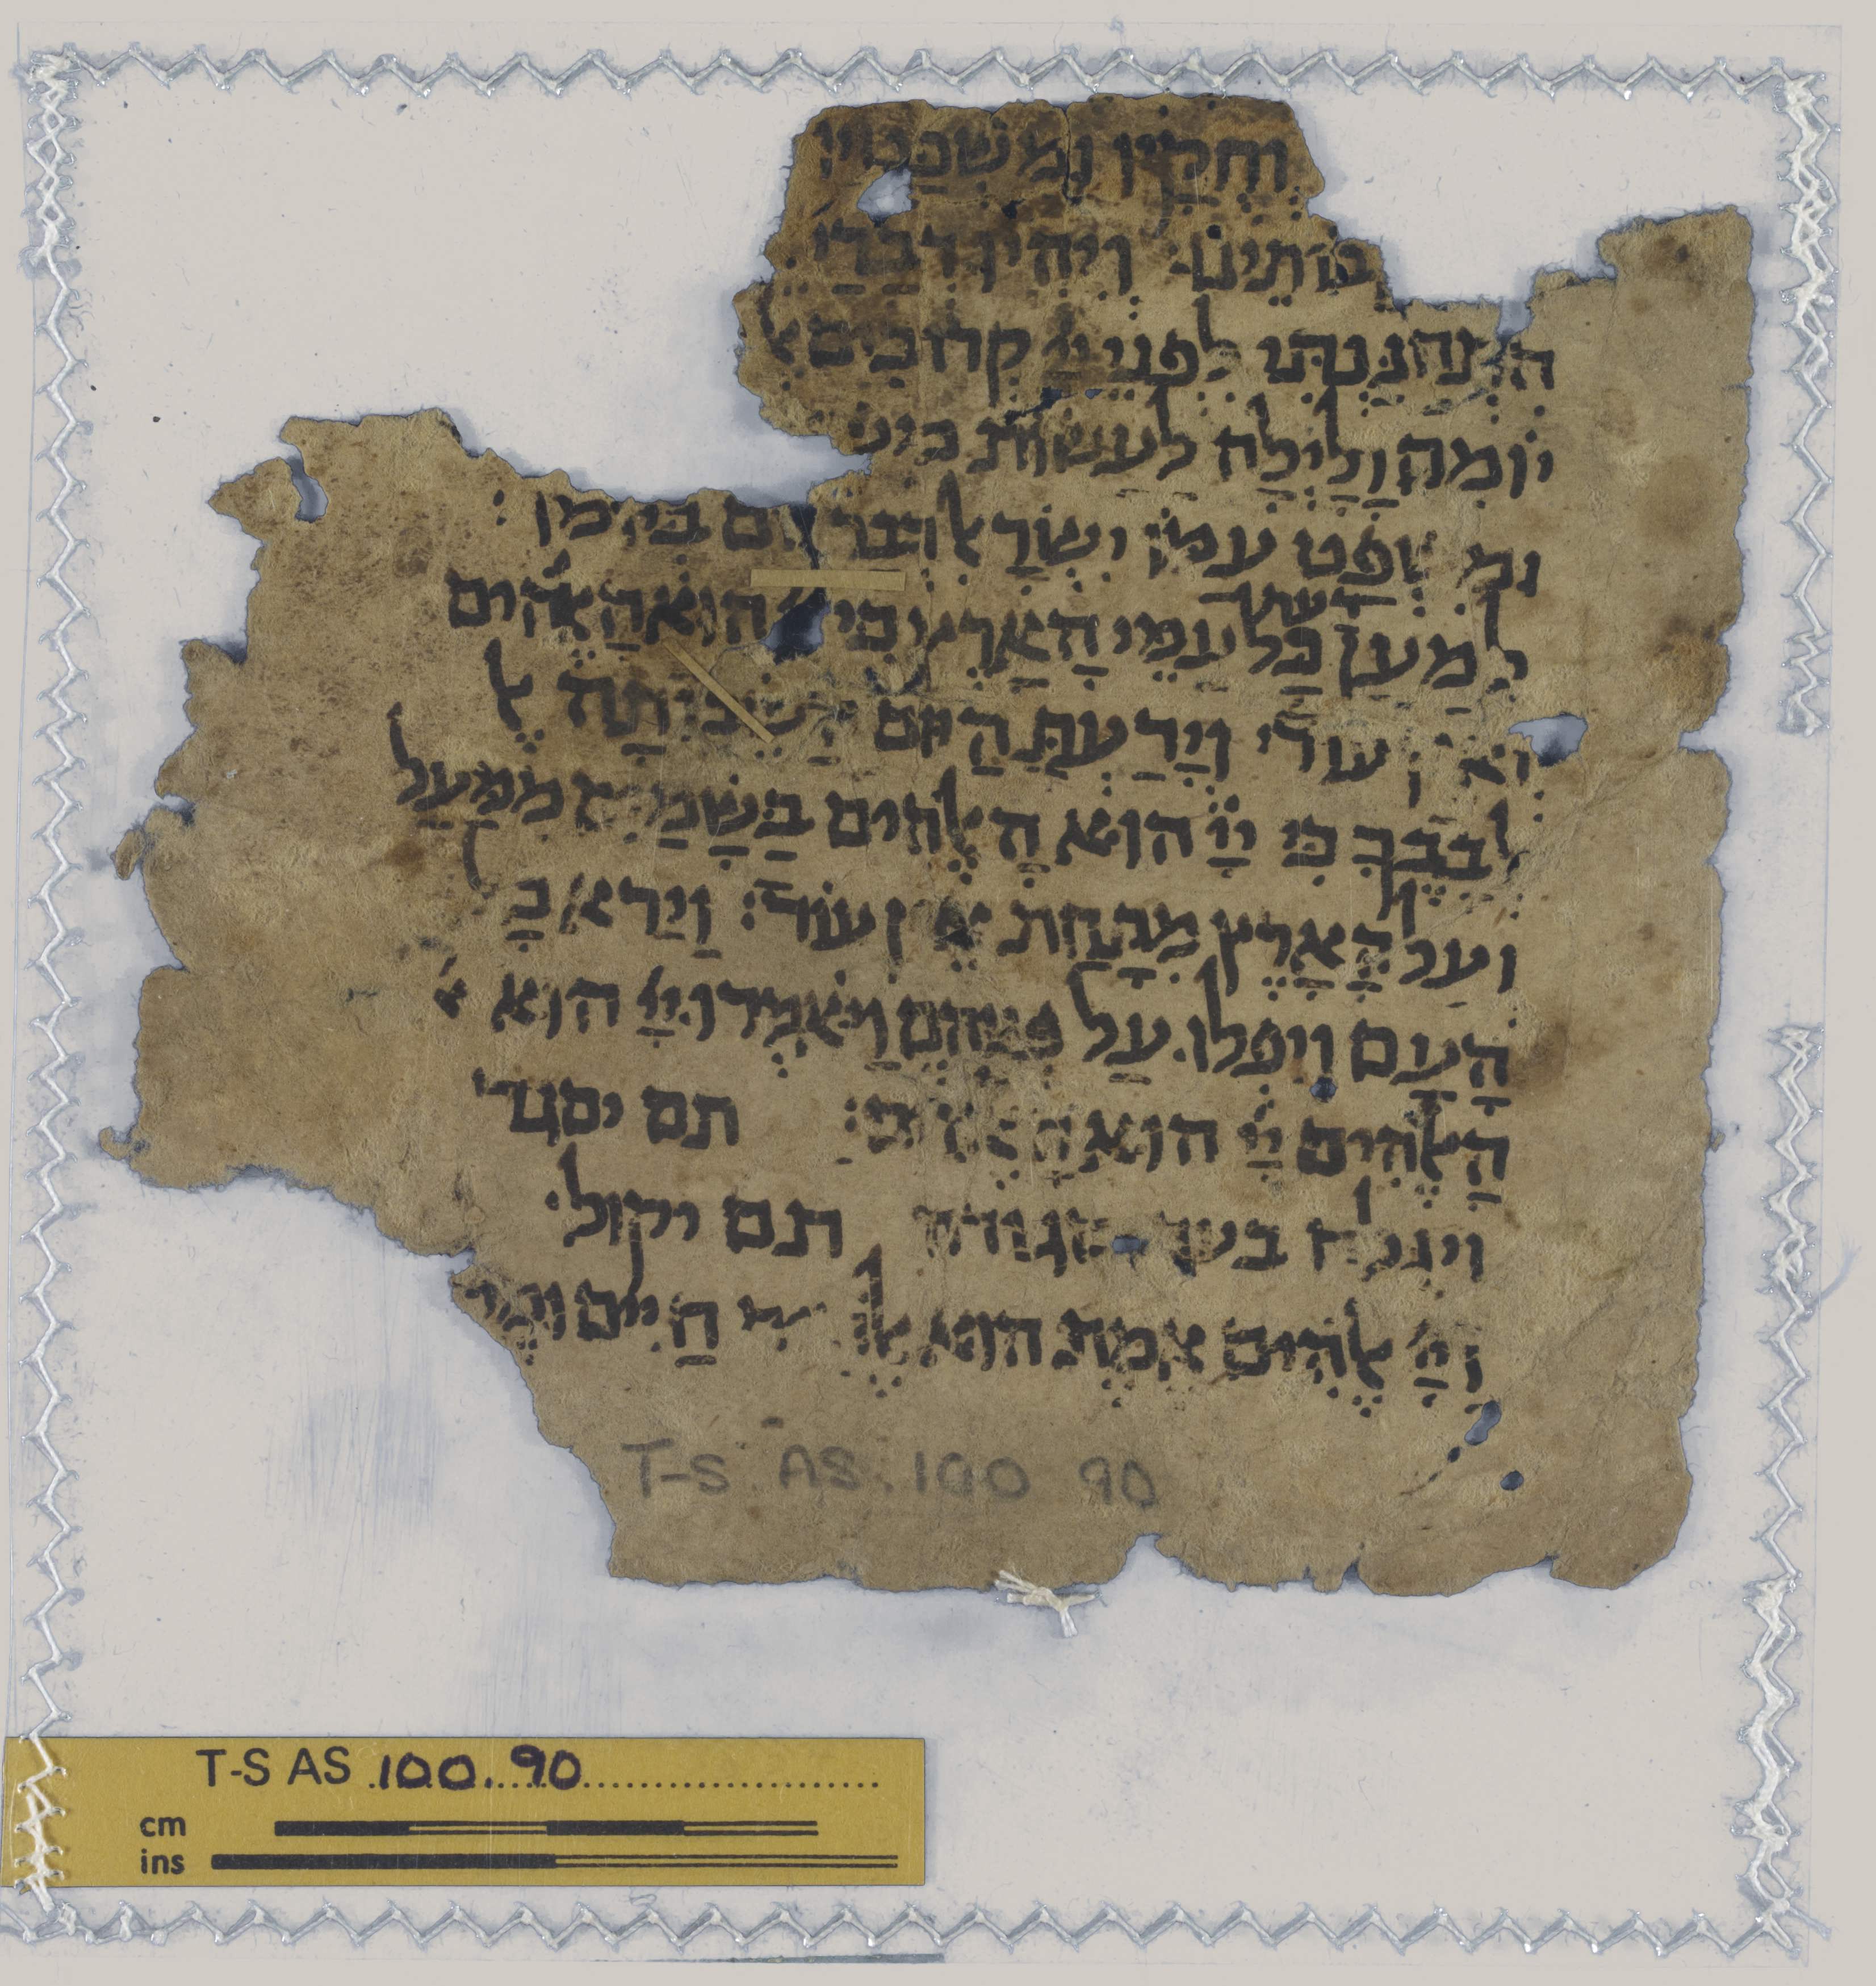 וחקיו ומשפטיו
בותינו: ויהיו דברי
התחננתי לפני ייי קרובים א
יומם ולילה לעשות
ומשפט עמו ישראל דבר יום ביומו:
דעת
למען כל עמי הארץ כי ייי הוא האלהים
ואין עוד וידעת היום והשבות אל
לבבך כי ייי הוא האלהים בשמים ממעל
ועל הארץ מתחת אין עוד: וירא כל
העם ויפלו על פניהם ויאמרו ייי הוא
האלהים ייי הוא האלהים: תם
תם יקול
וייי אלהים אמת הוא אלהים חיים
T-S AS.100 90
T-S AS 100.90
cm
ins